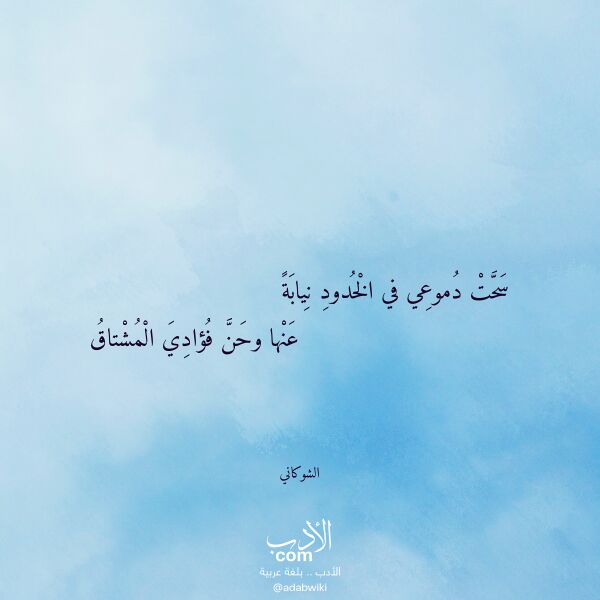 سَحَّتْ دُموعِي في الْخُدودِ نِيابَةً
عَنْها وحَنَّ فُؤادِيَ الْمُشْتاقُ
الشوكاني
الأدب
com
الأدب .. بلغة عربية
@adabwiki